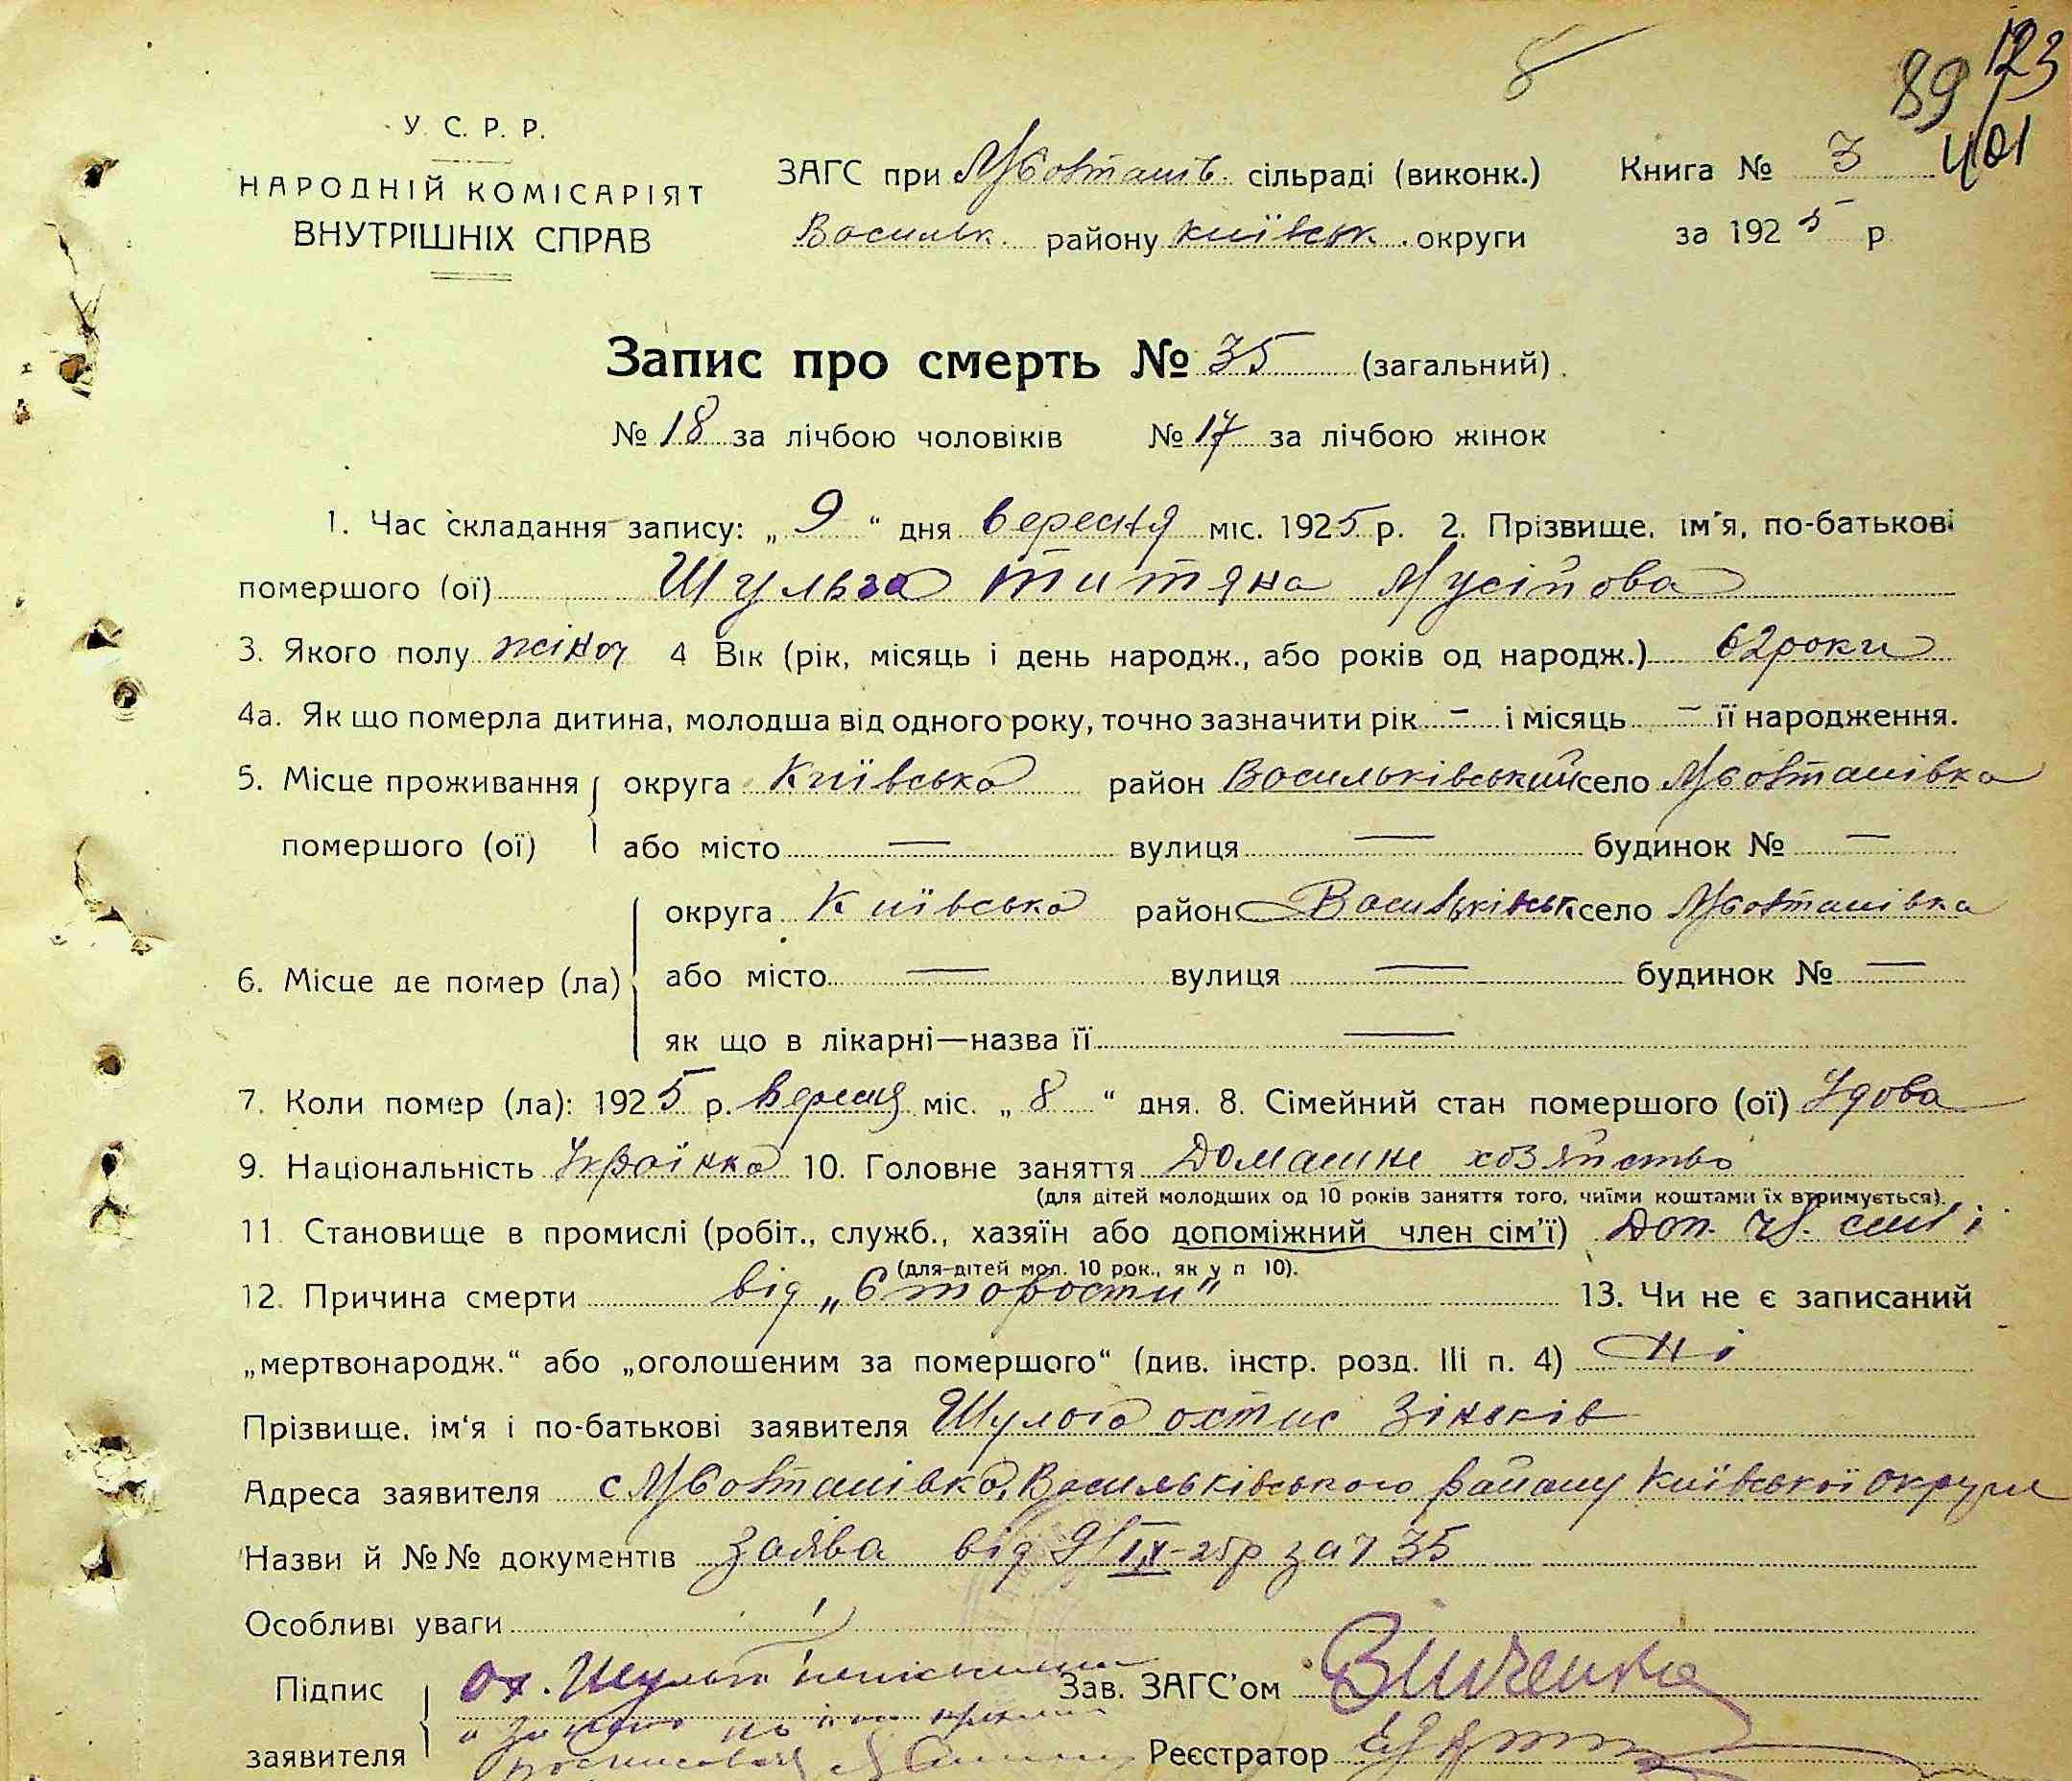 8
89 123
401
У. С. Р. Р.
НАРОДНІЙ КОМІСАРІЯТ
ВНУТРІШНІХ СПРАВ
ЗАГС при Мботанів. сільраді (виконк.) Книга № 3
Васильк. району київськ. округи за 1925 р
Запис про смерть № 35 (загальний).
№ 18 за лічбою чоловіків № 17 за лічбою жінок
1. Час складання запису: „9“ дня вересня міс. 1925 р. 2. Прізвище, ім'я, по-батькові
помершого (ої) Шульга Титяна Мусійова
3. Якого полу жіноч 4 Вік (рік, місяць і день народж., або років од народж.) 62 роки
4а. Як що померла дитина, молодша від одного року, точно зазначити рік – і місяць – її народження.
5. Місце проживання округа Київська район Васильківський село
помершого (ої) або місто — вулиця — будинок № —
округа Київська район Васильківськ село
6. Місце де помер (ла) або місто — вулиця — будинок № —
як що в лікарні—назва її —
7. Коли помер (ла): 1925 р. вересня міс. „8“ дня. 8. Сімейний стан помершого (ої) Удова
9. Національність Українка 10. Головне заняття Домашнє хозяйство
(для дітей молодших од 10 років заняття того, чиїми коштами їх втримується).
11. Становище в промислі (робіт., служб., хазяїн або допоміжний член сім'ї) Доп. чл. сім'ї
(для дітей мол. 10 рок., як у п 10).
12. Причина смерти від „Старости" 13. Чи не є записаний
„мертвонародж.“ або „оголошеним за помершого“ (див. інстр. розд. III п. 4) Ні
Прізвище, ім'я і по-батькові заявителя Шульга Зіньків
Адреса заявителя с. Васильківського району Київської округи
Назви й №№ документів Заява від 9/IX-25р за № 35
Особливі уваги
Підпис Ох. Шульга Зав. ЗАГС'ом
заявителя Реєстратор